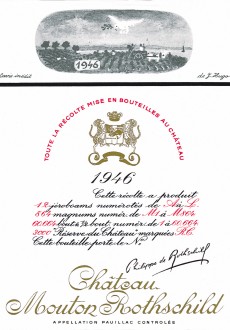 1946
de J. Hugo
TOUTE LA RÉCOLTE MISE EN BOUTEILLES AU CHÂTEAU
1946
Cette récolte a produit
12 jéroboams numérotés de A à L
magnums numér. de M1 à
bout. numér. de 1 à
3000 "Réserve du Château" marquées R.C.
Cette bouteille porte le No
Philippe de Rothschild
Château
Mouton Rothschild
APPELLATION PAUILLAC CONTRÔLÉE